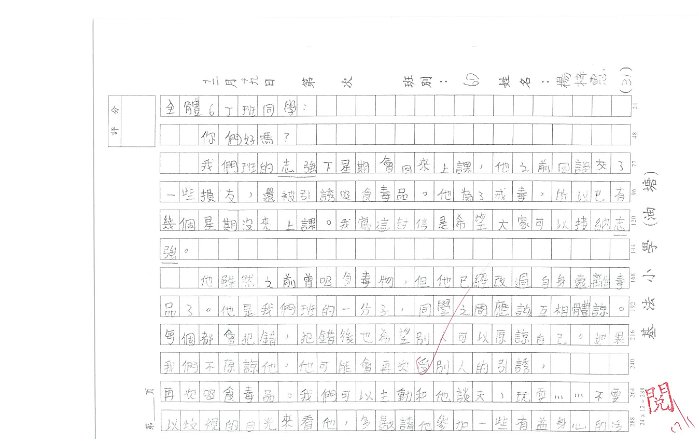 十二月十九日 第 次 班別： 6J 姓名：楊梓 (21)
全體6J班同學：
你們好嗎？
我們班的志強下星期會回來上課，他之前因誤交了
一些損友，還被引誘吸食毒品。他為了戒毒，所以已有
幾個星期沒來上課。我寫這封信是希望大家可以接納志
強。
他雖然之前曾吸食毒物，但他已經改過自身戒離毒
品了。他是我們班的一份子，同學之間應該互相體諒。
每個都會犯錯，犯錯後也希望別人可以原諒自己，如果
我們不原諒他，他可能會再次受別人的引誘，
再次吸食毒品。我們可以主動和他談天，玩耍……不要
以歧視的目光來看他，多邀請他參加一些有益身心的活
基法小學（油塘）
評分
第 頁
閱